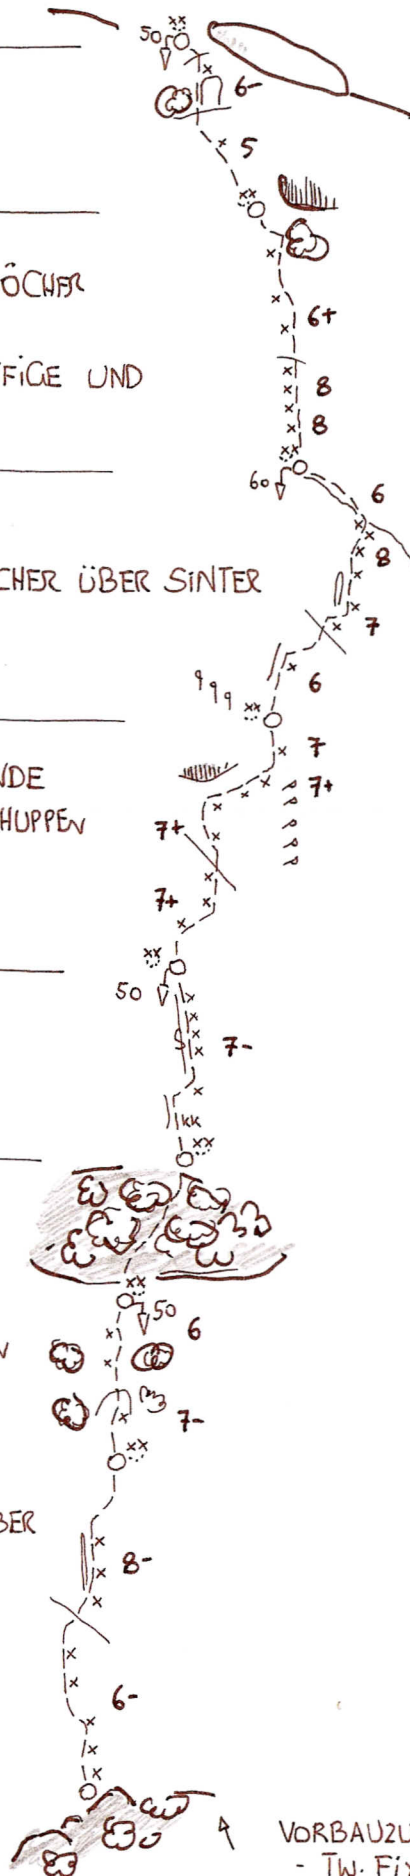 50
6-
5
ÖCHER
6+
FIGE UND
8
8
60
6
8
CHER ÜBER SINTER
7
6
7
NDE
7+
HUPPEN
7+
7+
50
7-
KK
50
6
7-
BER
8-
6-
VORBAUZU
- TW. FIX